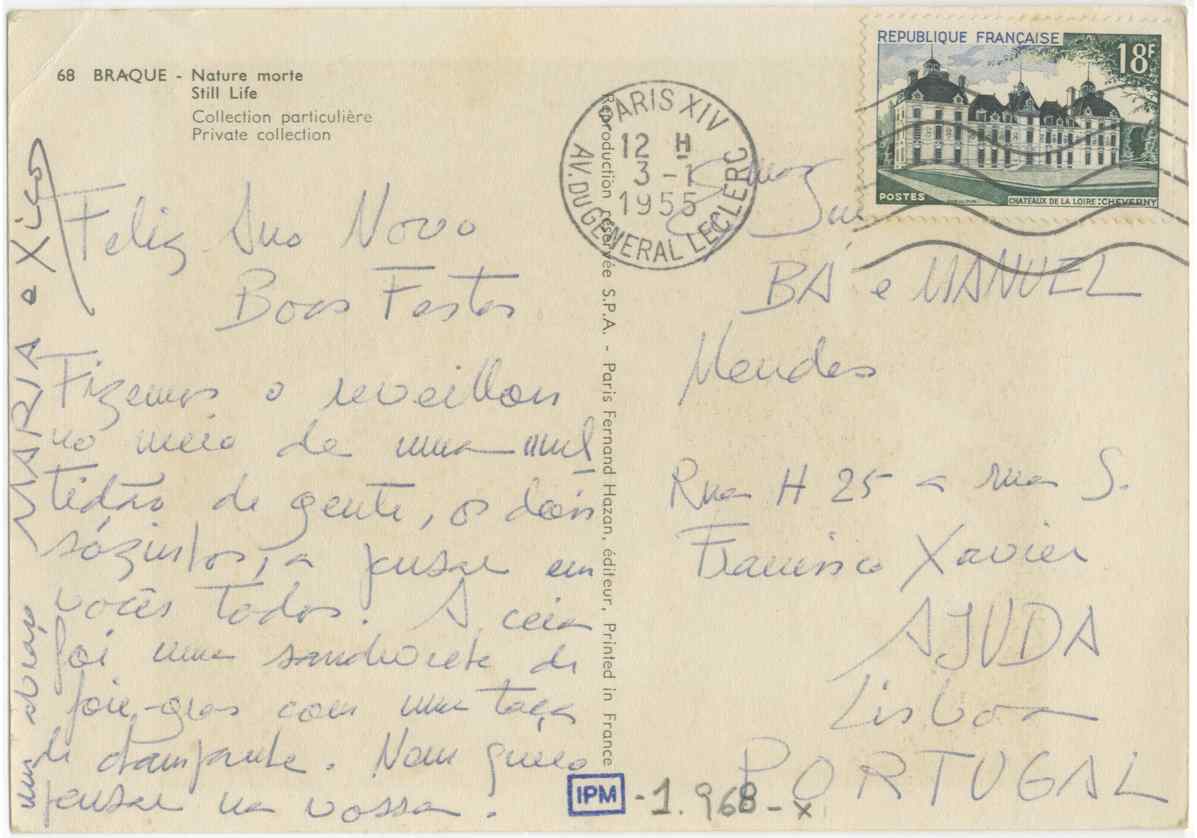 68 BRAQUE - Nature morte
Still Life
Collection particulière
Private collection
Feliz Ano Novo
Boas Festas
Fizemos o reveillon
no meio de uma mul
tidão de gente, os dois
sózinhos, a pensar em
vocês todos. A ceia
foi uma sandwiche de
foie-gras com uma taça
de champanhe. Nem quero
pensar na vossa.
um abraço
MARIA e Xico
Reproduction réservée S.P.A. - Paris Fernand Hazan, éditeur, Printed in France
PARIS XIV
12 H
3 - 1
1955
AV. DU GENERAL LECLERC
REPUBLIQUE FRANÇAISE
18F
POSTES
CHATEAUX DE LA LOIRE : CHEVERNY
BÁ e MANUEL
Mendes
Rua H 25 a rua S.
Francisco Xavier
AJUDA
Lisboa
PORTUGAL
IPM - 1.968 - X